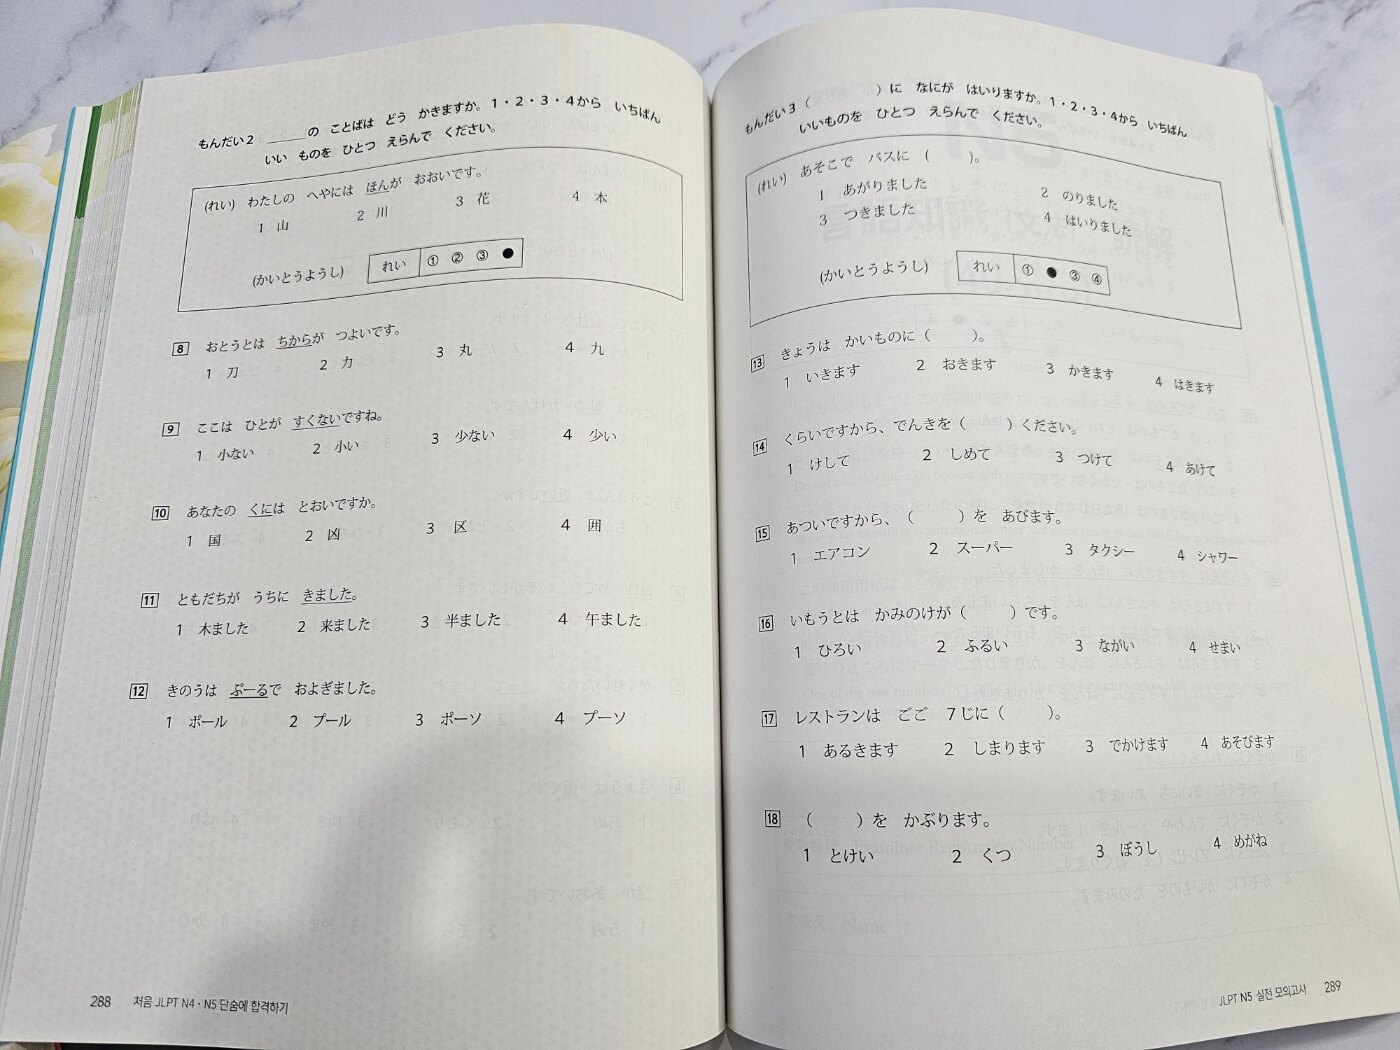 もんだい2 ______の ことばは どう かきますか。1・2・3・4から いちばん
いい ものを ひとつ えらんで ください。
(れい) わたしの へやには ほんが おおいです。
1 山 2 川 3 花 4 本
(かいとうようし) れい ① ② ③ ●
8 おとうとは ちからが つよいです。
1 刀 2 力 3 丸 4 九
9 ここは ひとが すくないですね。
1 小ない 2 小い 3 少ない 4 少い
10 あなたの くには とおいですか。
1 国 2 凶 3 区 4 囲
11 ともだちが うちに きました。
1 木ました 2 来ました 3 半ました 4 午ました
12 きのうは ぷーるで およぎました。
1 ポール 2 プール 3 ポーソ 4 プーソ
288 처음 JLPT N4・N5 단숨에 합격하기
もんだい3 ( )に なにが はいりますか。1・2・3・4から いちばん
いいものを ひとつ えらんで ください。
(れい) あそこで バスに ( )。
1 あがりました 2 のりました
3 つきました 4 はいりました
(かいとうようし) れい ① ● ③ ④
13 きょうは かいものに ( )。
1 いきます 2 おきます 3 かきます 4 はきます
14 くらいですから、でんきを ( ) ください。
1 けして 2 しめて 3 つけて 4 あけて
15 あついですから、( )を あびます。
1 エアコン 2 スーパー 3 タクシー 4 シャワー
16 いもうとは かみのけが ( ) です。
1 ひろい 2 ふるい 3 ながい 4 せまい
17 レストランは ごご 7じに ( )。
1 あるきます 2 しまります 3 でかけます 4 あそびます
18 ( )を かぶります。
1 とけい 2 くつ 3 ぼうし 4 めがね
JLPT N5 실전 모의고사 289